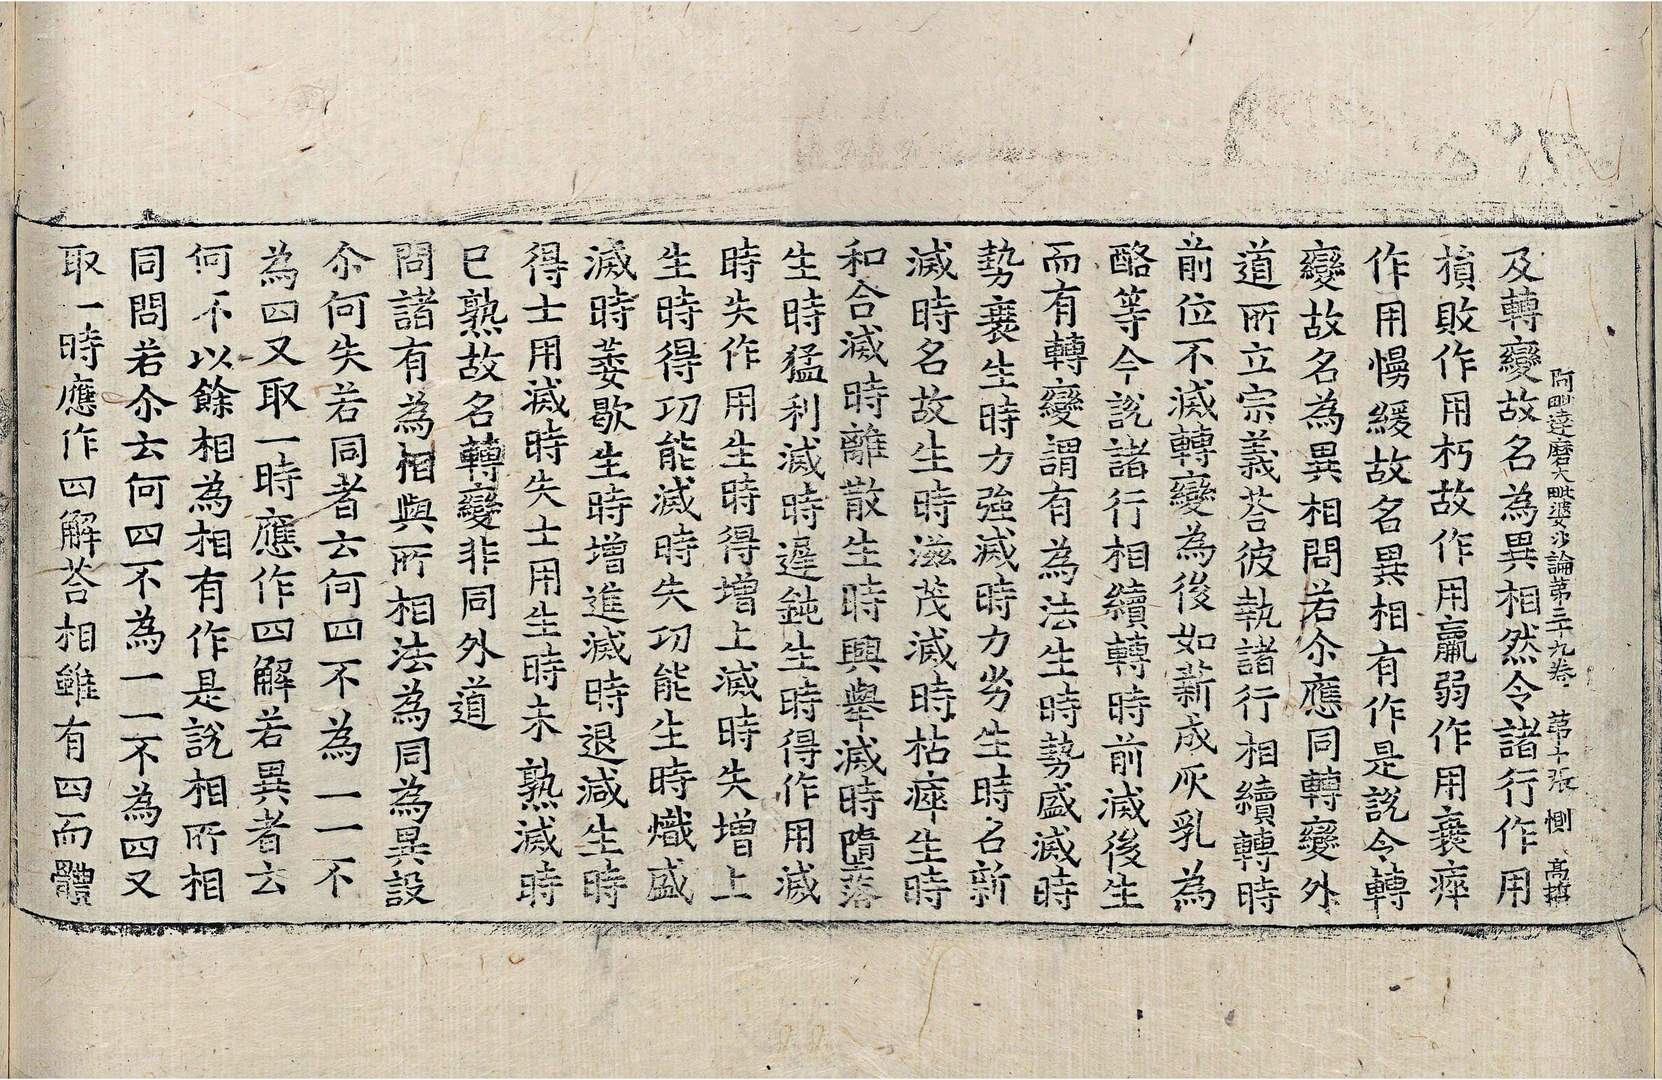 阿毗達磨大毗婆沙論第三十九卷 第十張 惻 高
及轉變故名為異相然令諸行作用
損敗作用朽故作用羸弱作用衰瘁
作用慢緩故名異相有作是說令轉
變故名為異相問若尒應同轉變外
道所立宗義荅彼執諸行相續轉時
前位不滅轉變為後如薪成灰乳為
酪等今說諸行相續轉時前滅後生
而有轉變謂有為法生時勢盛滅時
勢衰生時力強滅時力劣生時名新
滅時名故生時滋茂滅時枯瘁生時
和合滅時離散生時興舉滅時墮落
生時猛利滅時遲鈍生時得作用滅
時失作用生時得增上滅時失增上
生時得功能滅時失功能生時熾盛
滅時萎歇生時增進滅時退減生時
得士用滅時失士用生時未熟滅時
已熟故名轉變非同外道
問諸有為相與所相法為同為異設
尒何失若同者云何四不為一一不
為四又取一時應作四解若異者云
何不以餘相為相有作是說相所相
同問若尒云何四不為一一不為四又
取一時應作四解荅相雖有四而體